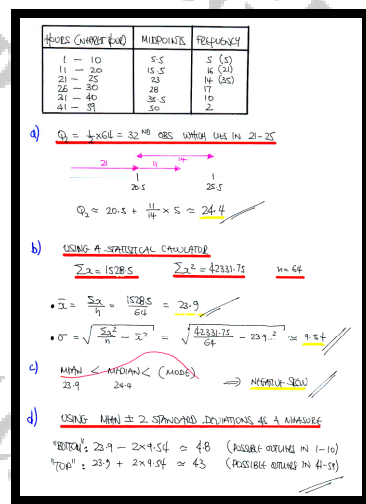 HOURS (NEAREST HOUR) MIDPOINTS FREQUENCY
1 - 10 5.5 5 (5)
11 - 20 15.5 16 (21)
21 - 25 23 14 (35)
26 - 30 28 17
31 - 40 35.5 10
41 - 59 50 2
a) Q₂ = ½×64 = 32ND OBS WHICH LIES IN 21-25
14
21 11
20.5 25.5
Q₂ ≈ 20.5 + 11/14 × 5 ≈ 24.4
b) USING A STATISTICAL CALCULATOR
Σx = 1528.5 Σx² = 42331.75 n = 64
• x̄ = Σx/n = 1528.5/64 = 23.9
• σ = √(Σx²/n - x̄²) = √(42331.75/64 - 23.9..²) ≈ 9.54
c) MEAN < MEDIAN < (MODE)
23.9 24.4 ⇒ NEGATIVE SKEW
d) USING MEAN ± 2 STANDARD DEVIATIONS AS A MEASURE
"BOTTOM": 23.9 - 2×9.54 ≈ 4.8 (POSSIBLE OUTLIERS IN 1-10)
"TOP": 23.9 + 2×9.54 ≈ 43 (POSSIBLE OUTLIERS IN 41-59)